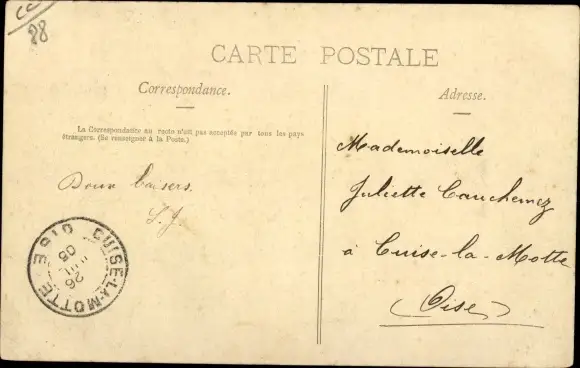 CC
28
CARTE POSTALE
Correspondance.
Adresse.
La Correspondance au recto n'est pas acceptée par tous les pays
étrangers. (Se renseigner à la Poste.)
Doux baisers.
S. J.
Mademoiselle
Juliette Cauchemez
à Cuise-la-Motte
(Oise)
CUISE-LA-MOTTE OISE
26
05